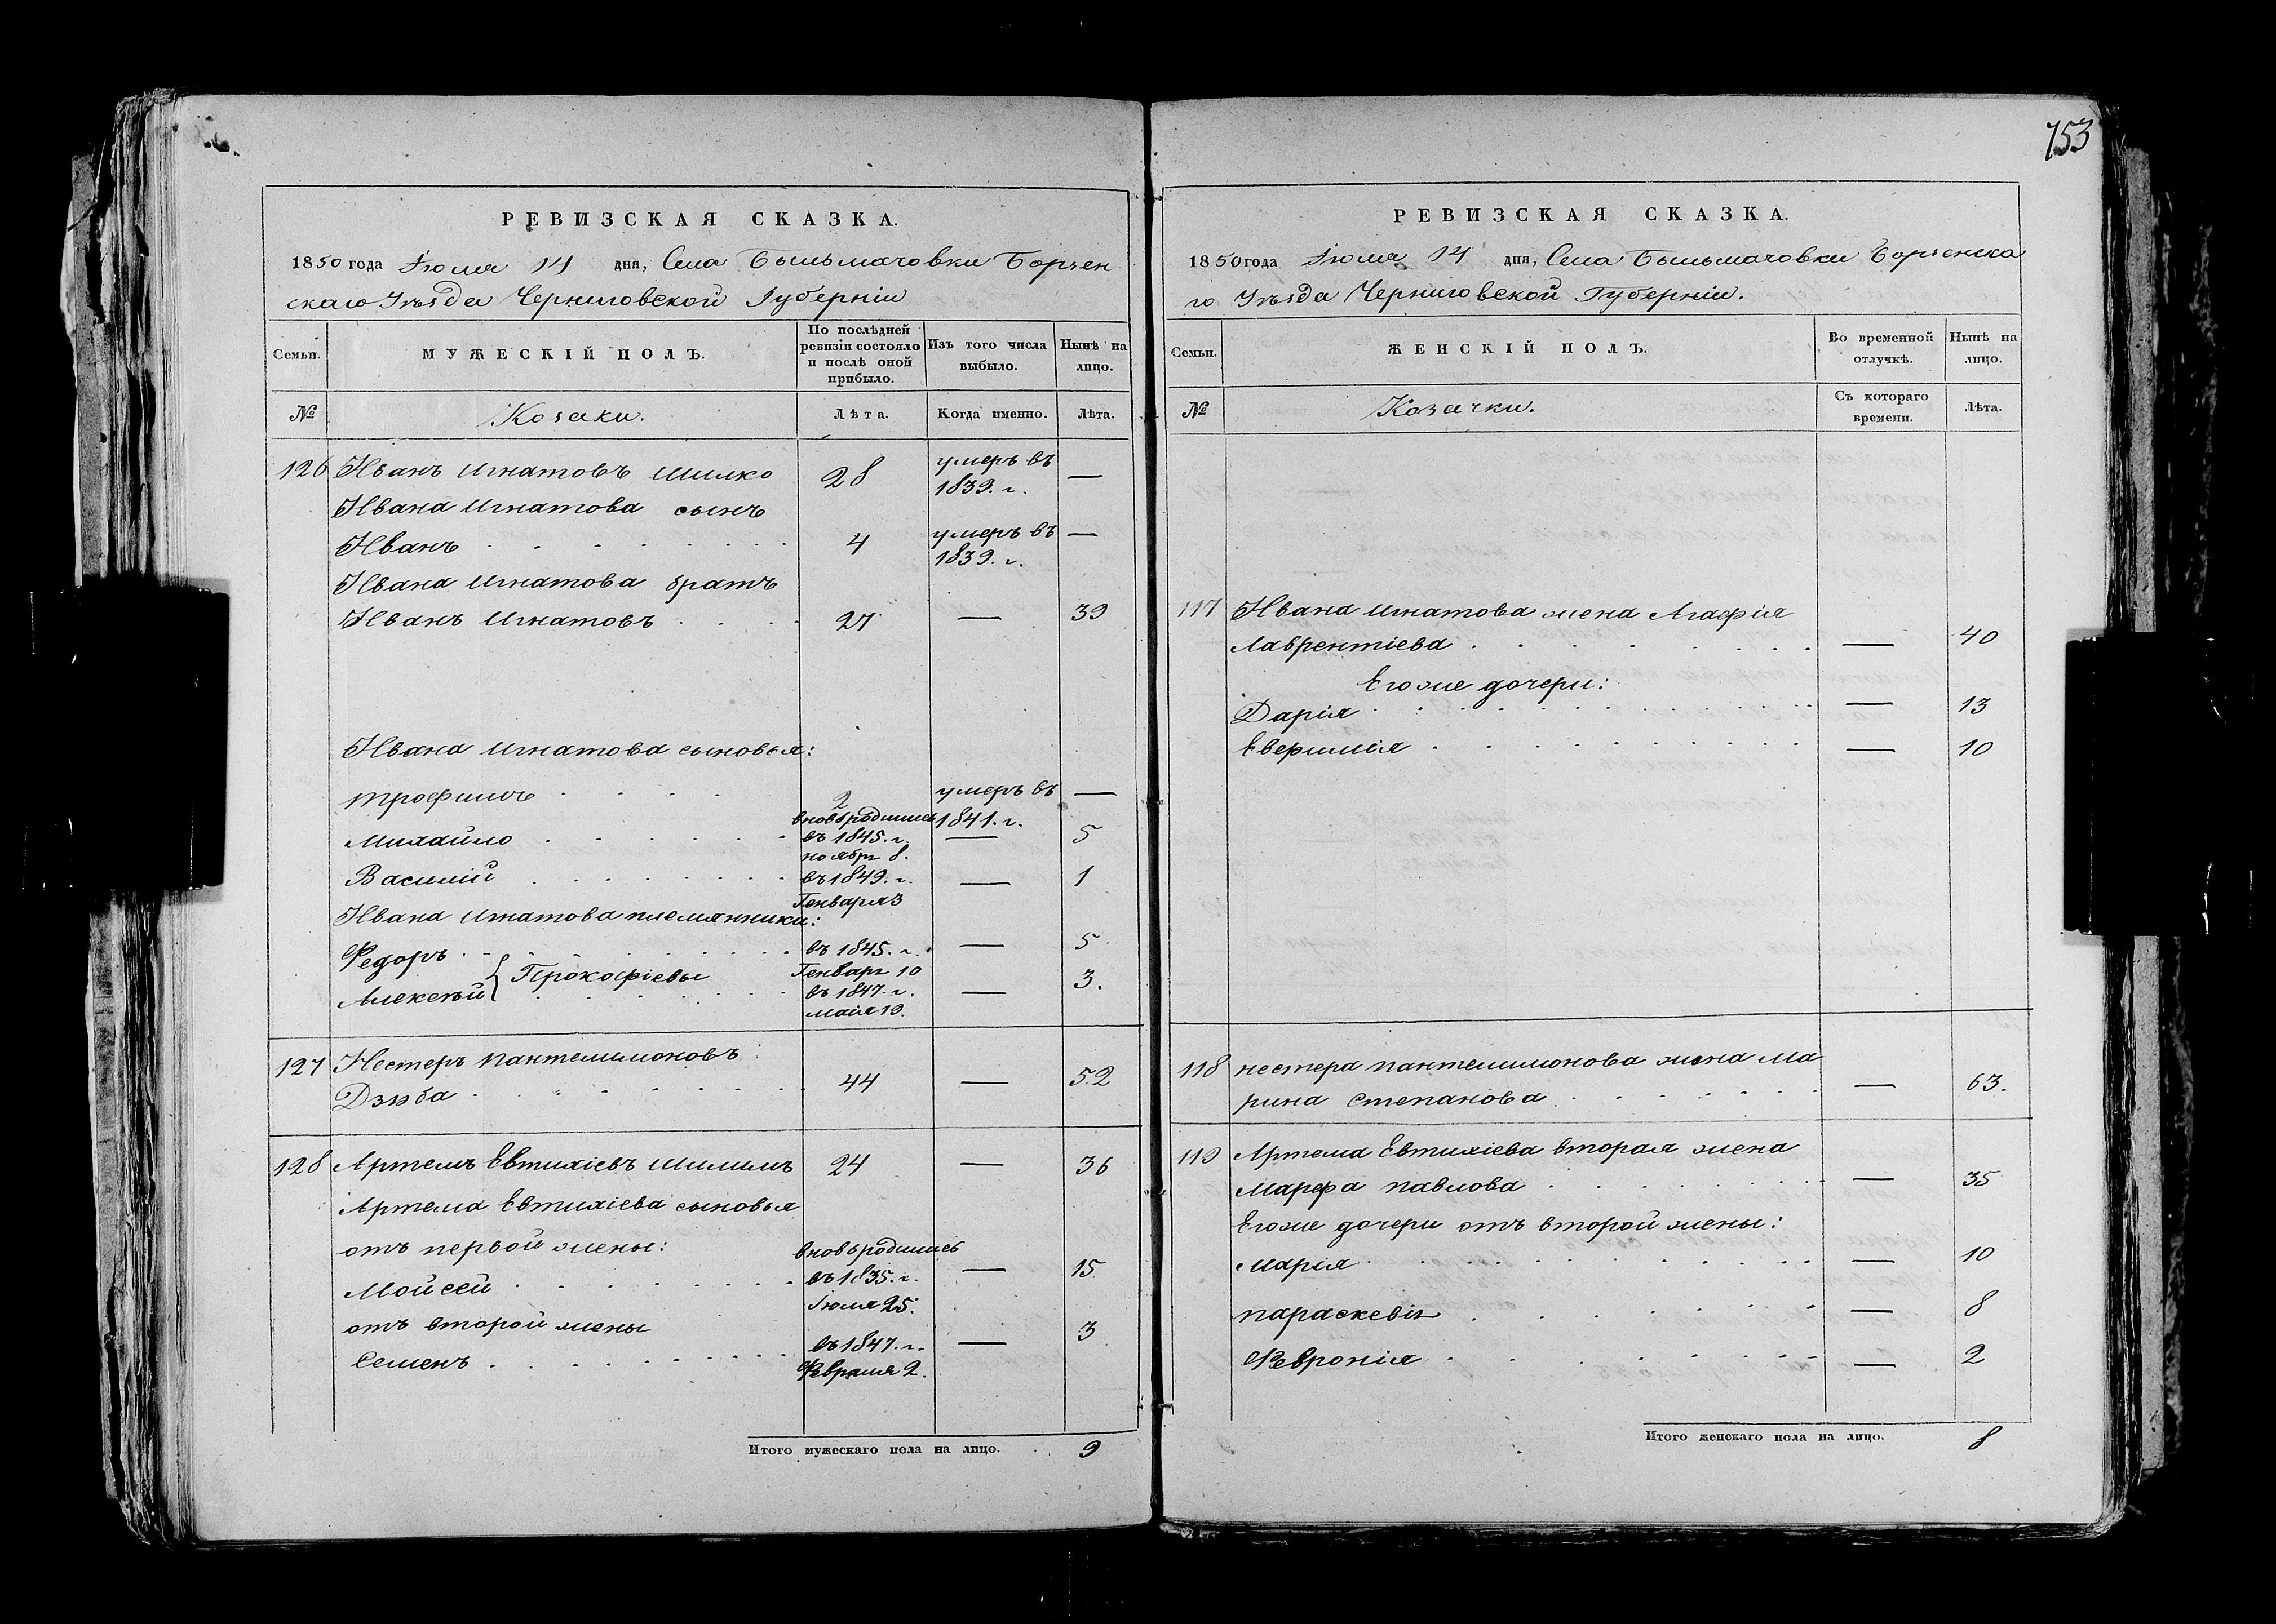 153
РЕВИЗСКАЯ СКАЗКА.
1850 года Июля 14 дня, Села Бельмачовки Борзен
скаго Уѣзда Черниговской Губерніи
Семьи.
МУЖЕСКІЙ ПОЛЪ.
По послѣдней ревизіи состояло и послѣ оной прибыло.
Изъ того числа выбыло.
Нынѣ на лицо.
№
Козаки.
Лѣта.
Когда именно.
Лѣта.
126 Иванъ Игнатовъ Шилко 28 умеръ въ 1839. г. —
Ивана Игнатова сынъ
Иванъ 4 умеръ въ 1839. г. —
Ивана Игнатова братъ
Иванъ Игнатовъ 27 — 39
Ивана Игнатова сыновья:
Трофимъ 2 умеръ въ 1841. г. —
Михайло вновь родились въ 1845. г. ноябр 8. — 5
Василій въ 1849. г. Генваря 3 — 1
Ивана Игнатова племянники:
Федоръ въ 1845. г. Генвар 10 — 5
Прокофіевы
Алексѣй въ 1847. г. маія 19. — 3.
127 Нестеръ Пантелимоновъ
Дзюба 44 — 52
128 Артемъ Евтихіевъ 24 — 36
Артема Евтихіева сыновья
отъ первой жены:
Мойсей вновь родились въ 1835. г. Июля 25. — 15
отъ второй жены
Семенъ въ 1847. г. Февраля 2. — 3
Итого мужескаго пола на лицо. 9
РЕВИЗСКАЯ СКАЗКА.
1850 года Июля 14 дня, Села Бельмачовки Борзенска
го Уѣзда Черниговской Губерніи.
Семьи.
ЖЕНСКІЙ ПОЛЪ.
Во временной отлучкѣ.
Нынѣ на лицо.
№
Козачки.
Съ котораго времени.
Лѣта.
117 Ивана Игнатова жена Агафія
Лаврентіева — 40
Егоже дочери:
Дарія — 13
Евфимія — 10
118 Нестера Пантелимонова жена Ма
рина Степанова — 63.
119 Артема Евтихіева вторая жена
Марфа Павлова — 35
Егоже дочери отъ второй жены:
Марія — 10
Параскевія — 8
Февронія — 2
Итого женскаго пола на лицо. 8